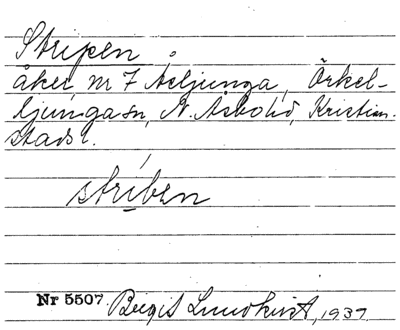 Stripen
åker, nr 7 Åsljunga, Örkel-
ljunga sn, N. Åsbo hd, Kristian-
stads l.
stri̱ben
Nr 5507. Birgit Lundkvist, 1937.